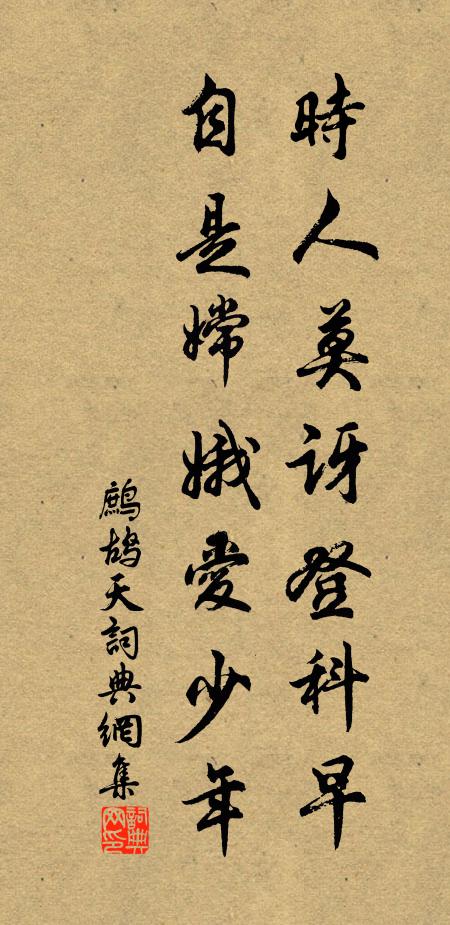 時人莫訝登科早
自是嫦娥愛少年
鷓鴣天詞典網集
詞典網印